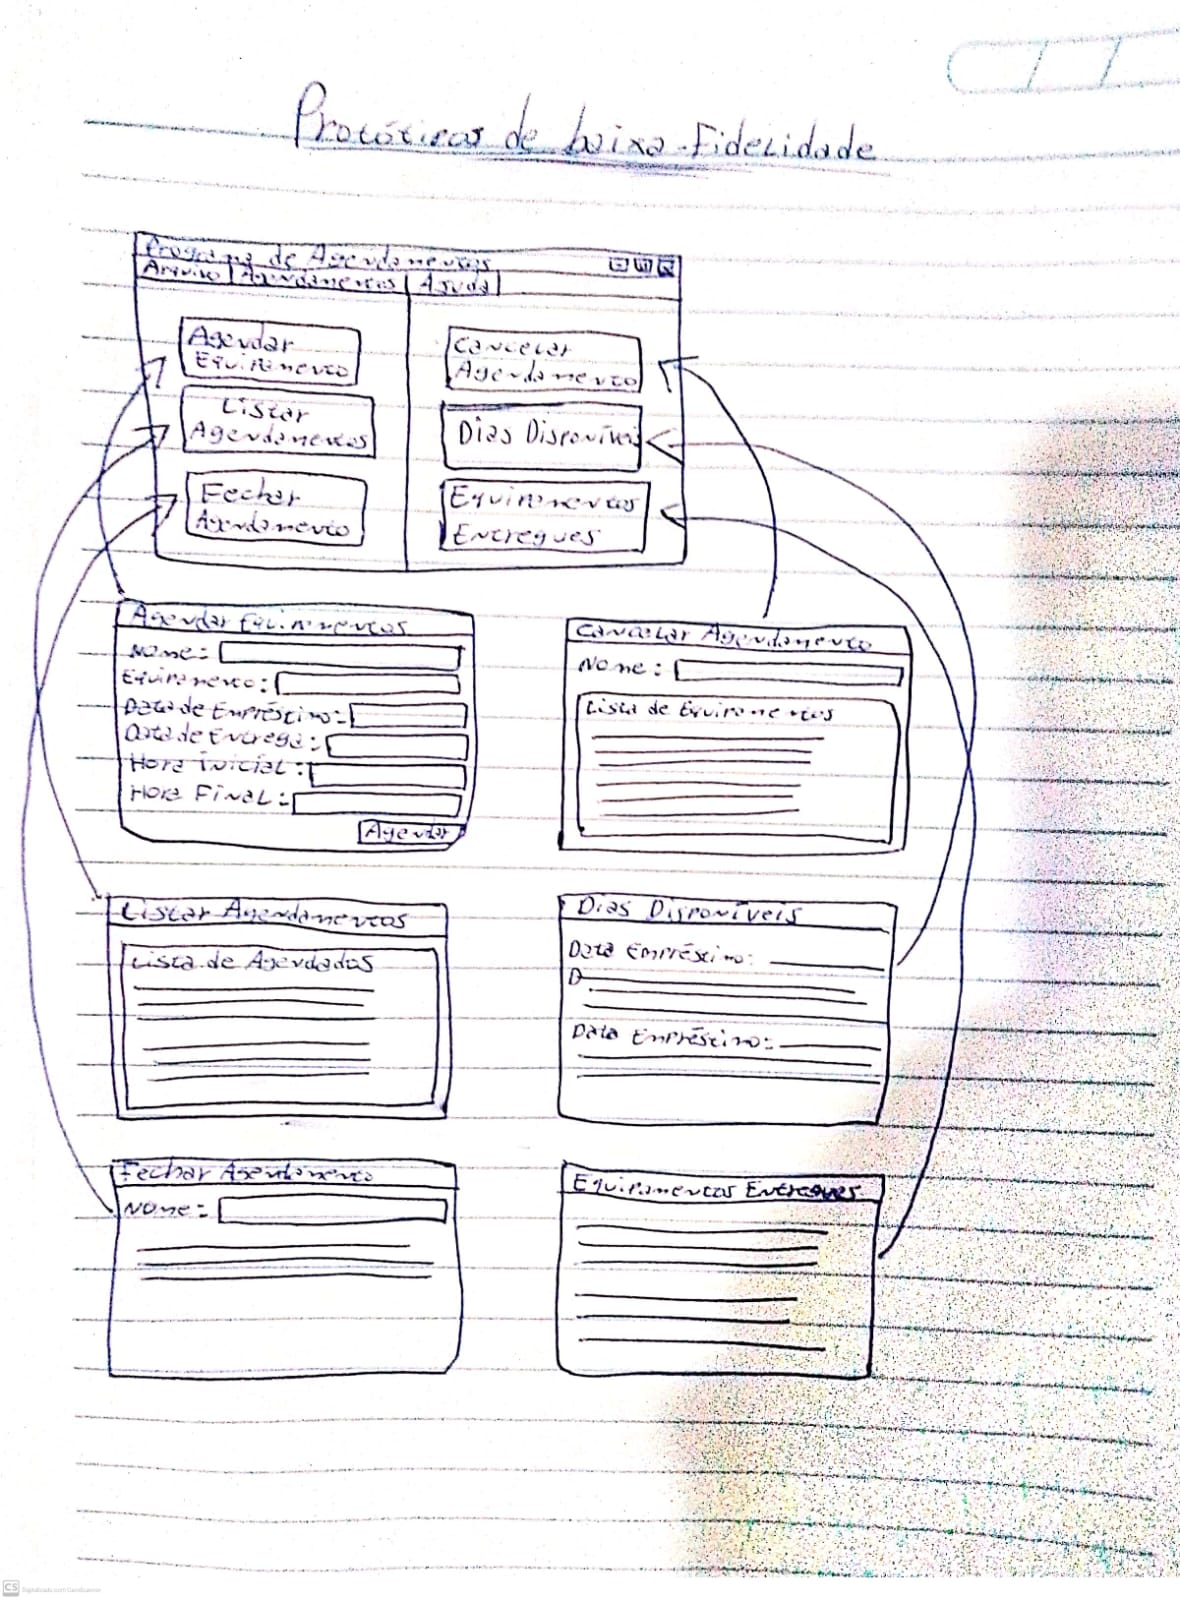 Protótipos de baixa-Fidelidade
Programa de Agendamentos
Arquivo Agendamentos Ajuda
Agendar
Equipamento
Cancelar
Agendamento
Listar
Agendamentos
Dias Disponíveis
Fechar
Agendamento
Equipamentos
Entregues
Agendar Equipamentos
Nome:
Equipamento:
Data de Empréstimo:
Data de Entrega:
Hora Inicial:
Hora Final:
Agendar
Cancelar Agendamento
Nome:
Lista de Equipamentos
Listar Agendamentos
Lista de Agendados
Dias Disponíveis
Data Empréstimo:
D
Data Empréstimo:
Fechar Agendamento
Nome:
Equipamentos Entregues
CS Digitalizado com CamScanner